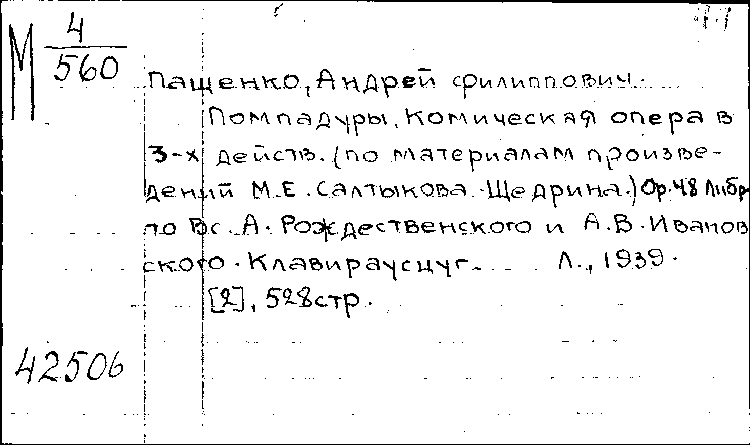 М 4
560
Пащенко, Андрей Филиппович.
Помпадуры. Комическая опера в
3-х действ. (по материалам произве-
дений М.Е. Салтыкова-Щедрина.) Op. 48 Либр.
по Вс. А. Рождественского и А.В. Иванов
ского. Клавираусцуг. Л., 1939.
[2], 528 стр.
42506